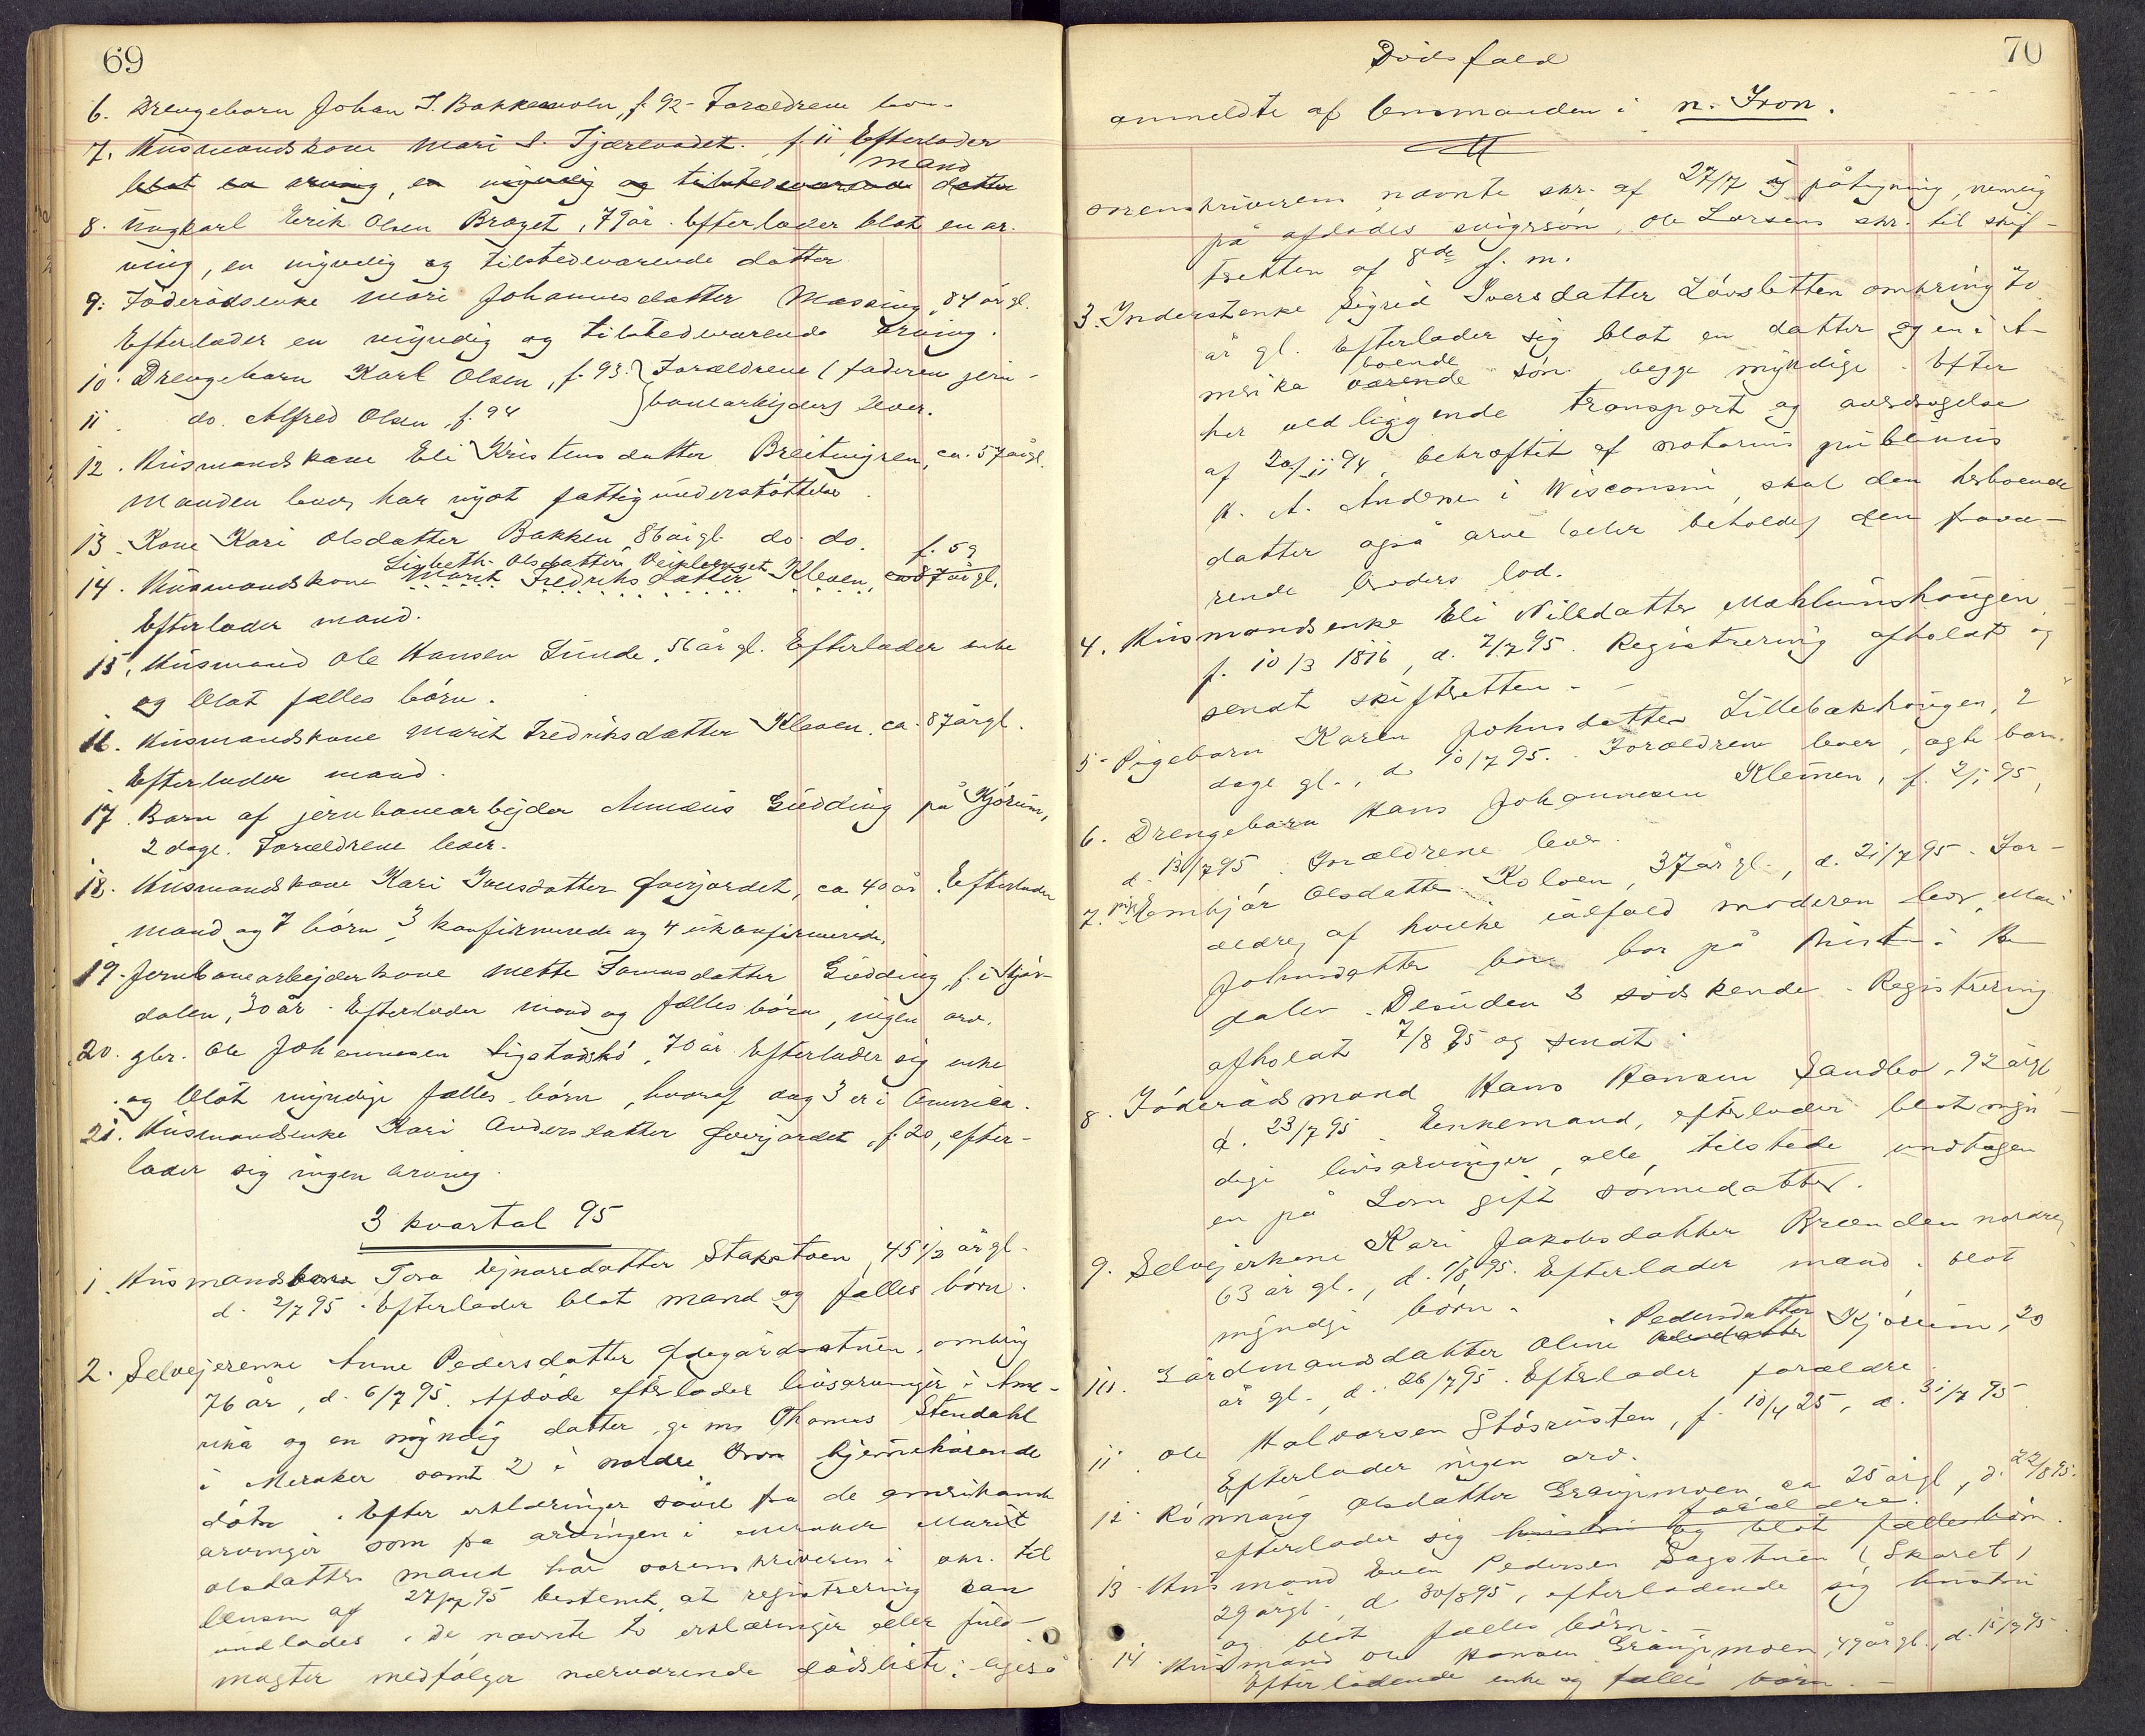 69
6. Drengebarn Johan J. Bakkemoen, f. 92 - Forældrene lev-
7. Husmandskone Mari S. Tjærevadet. f. 11 Efterlader
mand
blot en arving, en myndig og tilstedeværende datter
8. Ungkarl Erik Olsen Braget, 79 år. Efterlader blot en ar-
ving, en myndig og tilstedeværende datter
9. Föderådsenke Mari Johannesdatter Massing, 84 år gl.
Efterlader en myndig og tilstedeværende arving.
10. Drengebarn Karl Olsen, f. 93. Forældrene (faderen jern-
11. do. Alfred Olsen, f. 94 banearbejder) lever.
12. Husmandskone Eli Kristensdatter Breitmyren, ca. 57 år gl.
Manden lever, har nydt fattigunderstöttelse.
13. Kone Kari Olsdatter Bakken 86 år gl. do. do.
Lisbeth Olsdatter f. 59
14. Husmandskone Marit Fredriksdatter Kleven, ca 87 år gl.
Efterlader mand.
15. Husmand Ole Hansen Lunde, 56 år gl. Efterlader enke
og blot fælles börn.
16. Husmandskone Marit Fredriksdatter Kleven. ca. 87 år gl.
Efterlader mand.
17. Barn af jernbanearbejder Amæus Gjedding på Kjörum,
2 dage. Forældrene lever.
18. Husmandskone Kari Iversdatter Överjordet, ca 40 år. Efterlader
mand og 7 börn, 3 konfirmerede og 4 ukonfirmerede.
19. Jernbanearbejderkone Mette Tomasdatter Gjedding, f. i Stjör-
dalen, 30 år. Efterlader mand og fælles börn, ingen arv.
20. gbr. Ole Johannesen Sigstadskö, 70 år. Efterlader sig enke
og blot myndige fælles börn, hvoraf dog 3 er i America.
21. Husmandsenke Kari Andersdatter Överjordet, f. 20, efter-
lader sig ingen arving.
3 kvartal 95
1. Husmandskone Tora Ejnarsdatter Stakstoen, 45 1/2 år gl.
d. 2/7 95. Efterlader blot mand og fælles börn.
2. Selvejerenke Anne Pedersdatter Ödegårdsstuen, omkring
76 år, d. 6/7 95. Afdöde efterlader livsarvinger i Ame-
rika og en myndig datter, g. m. Thomas Stendahl
i Meraker samt 2 i nordre Fron hjemmehörende
dötre. Efter erklæringer såvel fra de amerikanske
arvinger som fra arvingen i Meraker Marit
Olsdatters mand har sorenskriveren i skr. til
lensm af 27/7 95 bestemt, at registrering kan
undlades. De nævnte to erklæringer eller fuld-
magter medfölger nærværende dödsliste; ligeså
70
Dödsfald
anmeldte af lensmanden i n. Fron.
sorenskriverens nævnte skr. af 27/7 og påtegning, nemlig
på afdödes svigersön, Ole Larsens skr. til skif-
teretten af 8de f. m.
3. Inderstenke Sigrid Iversdatter Lövsletten omkring 70
år gl. Efterlader sig blot en datter og en i A-
boende
merika værende sön. begge myndige. Efter
her vedliggende transport og overdragelse
af 20/11 94, bekræftet af notarius publicus
K. A. Andersen i Wisconsin, skal den herboende
datter også arve (eller beholde) den fravæ-
rende broders lod.
4. Husmandsenke Eli Nilsdatter Mæhlumshaugen
f. 10/3 1816, d. 2/7 95. Registrering afholdt og
sendt skifteretten. -
5. Pigebarn Karen Johnsdatter Lillebakhaugen, 2
dage gl., d. 10/7 95. Forældrene lever, ægte barn.
6. Drengebarn Hans Johannesen Kleiven, f. 2/1 95,
d. 13/7 95. Forældrene lever.
7. pige Embjör Olsdatter Koloen, 37 år gl., d. 21/7 95. For-
ældre, af hvilke ialfald moderen lever, Mari
Johnsdatter bor på
dalen. Desuden 3 södskende. Registrering
afholdt 7/8 95 og sendt.
8. Föderådsmand Hans Hansen Sandbo, 92 år gl
d. 23/7 95. Enkemand, efterlader blot myn-
dige livsarvinger, alle tilstede undtagen
en på Lom gift sönnedatter.
9. Selvejerkone Kari Jakobsdatter Brænden nordre,
63 år gl., d. 1/8 95. Efterlader mand. blot
myndige börn.
Pedersdatter
10. Gårdmandsdatter Oline Olsdatter Kjörum, 20
år gl., d. 26/7 95. Efterlader forældre.
11. Ole Halvorsen Stösrusten, f. 10/4 25, d. 31/7 95
Efterlader ingen arv.
12. Rönnaug Olsdatter Graupmoen, ca 25 år gl, d. 22/8 95.
forældre.
efterlader sig hustru og blot fælles börn.
13. Husmand Even Pedersen Sagstuen (Skaret)
29 år gl., d. 30/8 95, efterladende sig hustru
og blot fælles börn.
14. Husmand Ole Hansen Graupmoen, 49 år gl., d. 15/9 95.
Efterladende enke og fælles börn. -